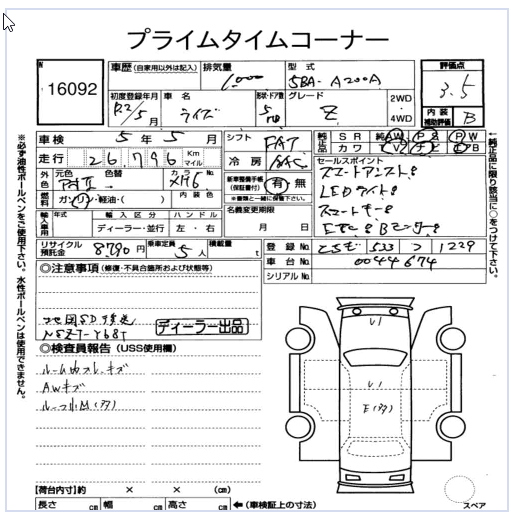 プライムタイムコーナー
16092
車歴 (自家用以外は記入)
排気量
1,000
型式
5BA-A200A
評価点
3.5
初度登録年月
R2/5 月
車名
ライズ
形状・ドア数
5
グレード
Z
2WD
4WD
内装補助評価
B
車検 5年 5月
走行 26,796 Km マイル
シフト FAT
冷房 AAC
純正品 SR 純AW PS PW
カワ TV ナビ AB
外色 元色 色替 カラーNo. X46
燃料 ガソリン・軽油・( )
内装色
新車整備手帳(保証書付) 有・無
※書類と一緒に保管下さい。
セールスポイント
スマートアシスト
LEDライト
スマートキー
輸入車用 年式 輸入区分 ハンドル
ディーラー・並行 左・右
名義変更期限
月 日
リサイクル預託金 8790円
乗車定員 5人
積載量
登録No. 533 1229
車台No. 0044674
シリアルNo.
◎注意事項 (修復・不具合箇所および状態等)
ディーラー出品
◎検査員報告 (USS使用欄)
AWキズ
【荷台内寸】約 × × (cm)
長さ cm 幅 cm 高さ cm ←(車検証上の寸法)
スペア
※必ず油性ボールペンをご使用下さい。水性ボールペンは使用できません。
←純正品に限り該当に○をつけて下さい。